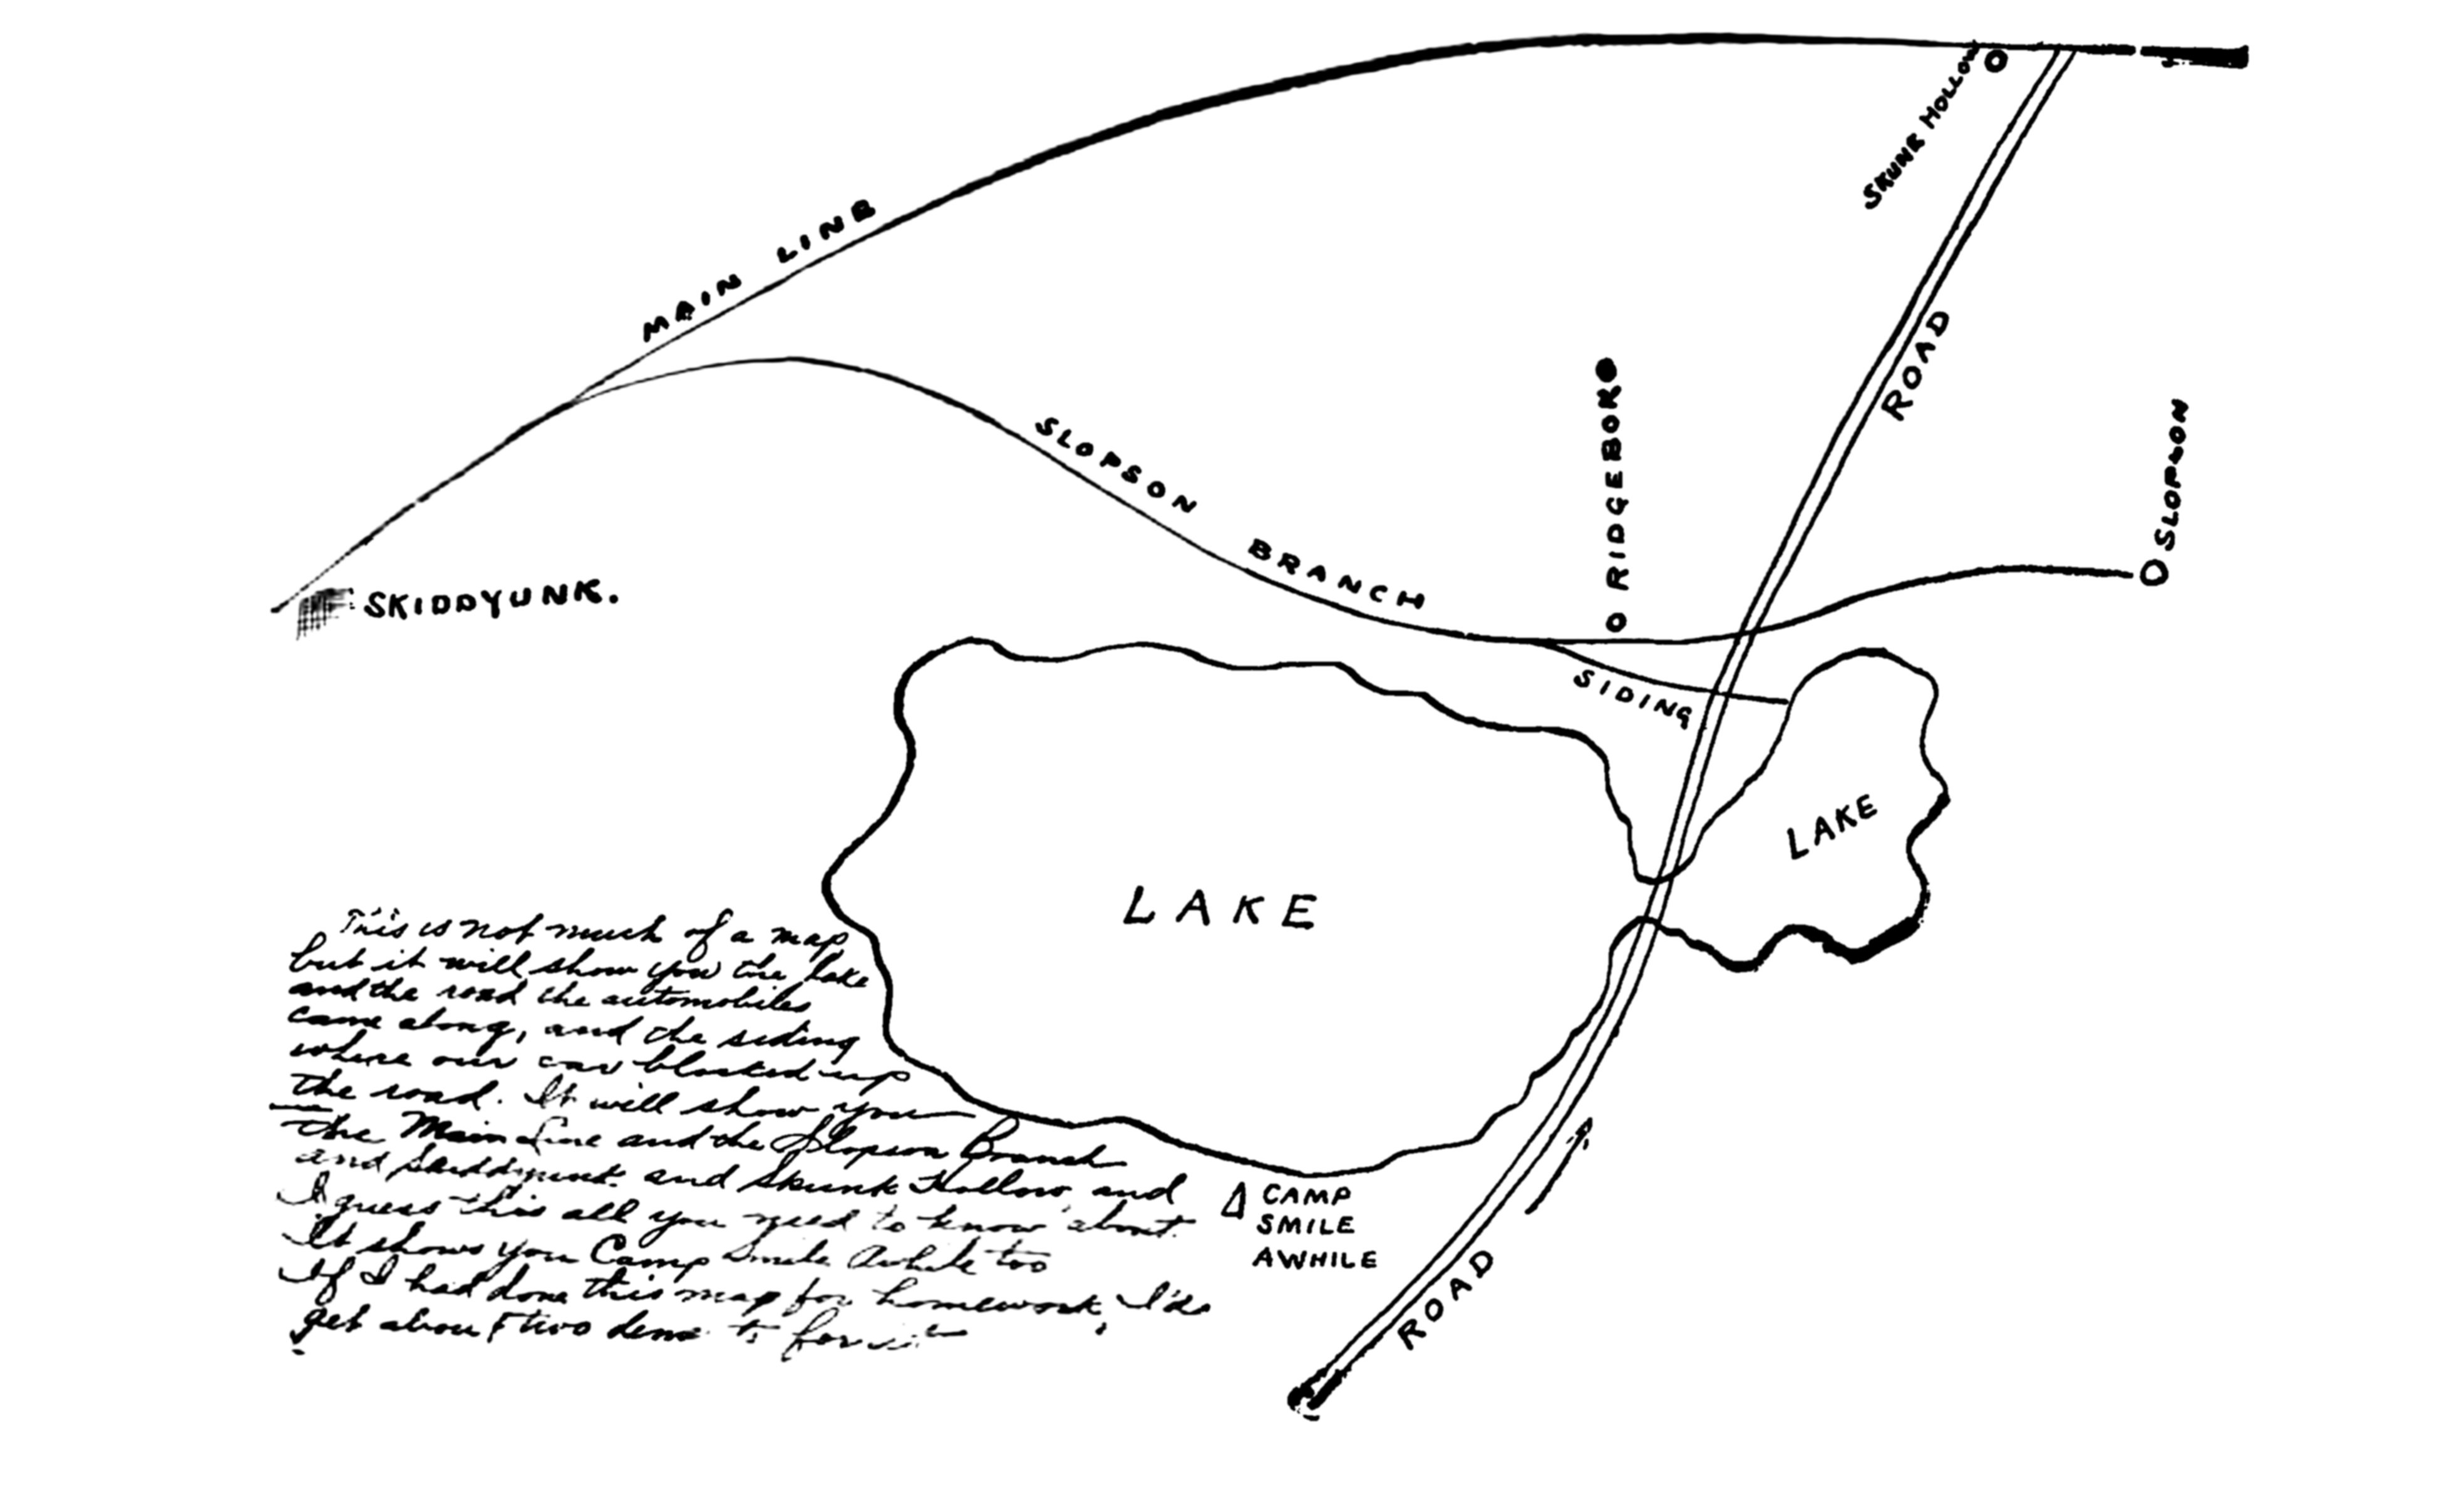 SKUNK HOLLOW
MAIN LINE
ROAD
RIDGEBORO
SLOPSON
SLOPSON BRANCH
SKIDDYUNK.
SIDING
LAKE
LAKE
This is not much of a map
but it will show you the lake
and the road the automobiles
came along, and the siding
where our car blocked up
the road. It will show you
the Main Line and the Slopson Branch
and Skiddyunk and Skunk Hollow and
I guess this all you need to know about.
It shows you Camp Smile Awhile too
If I had done this map for homework, I'd
get about two demerits for it
CAMP
SMILE
AWHILE
ROAD